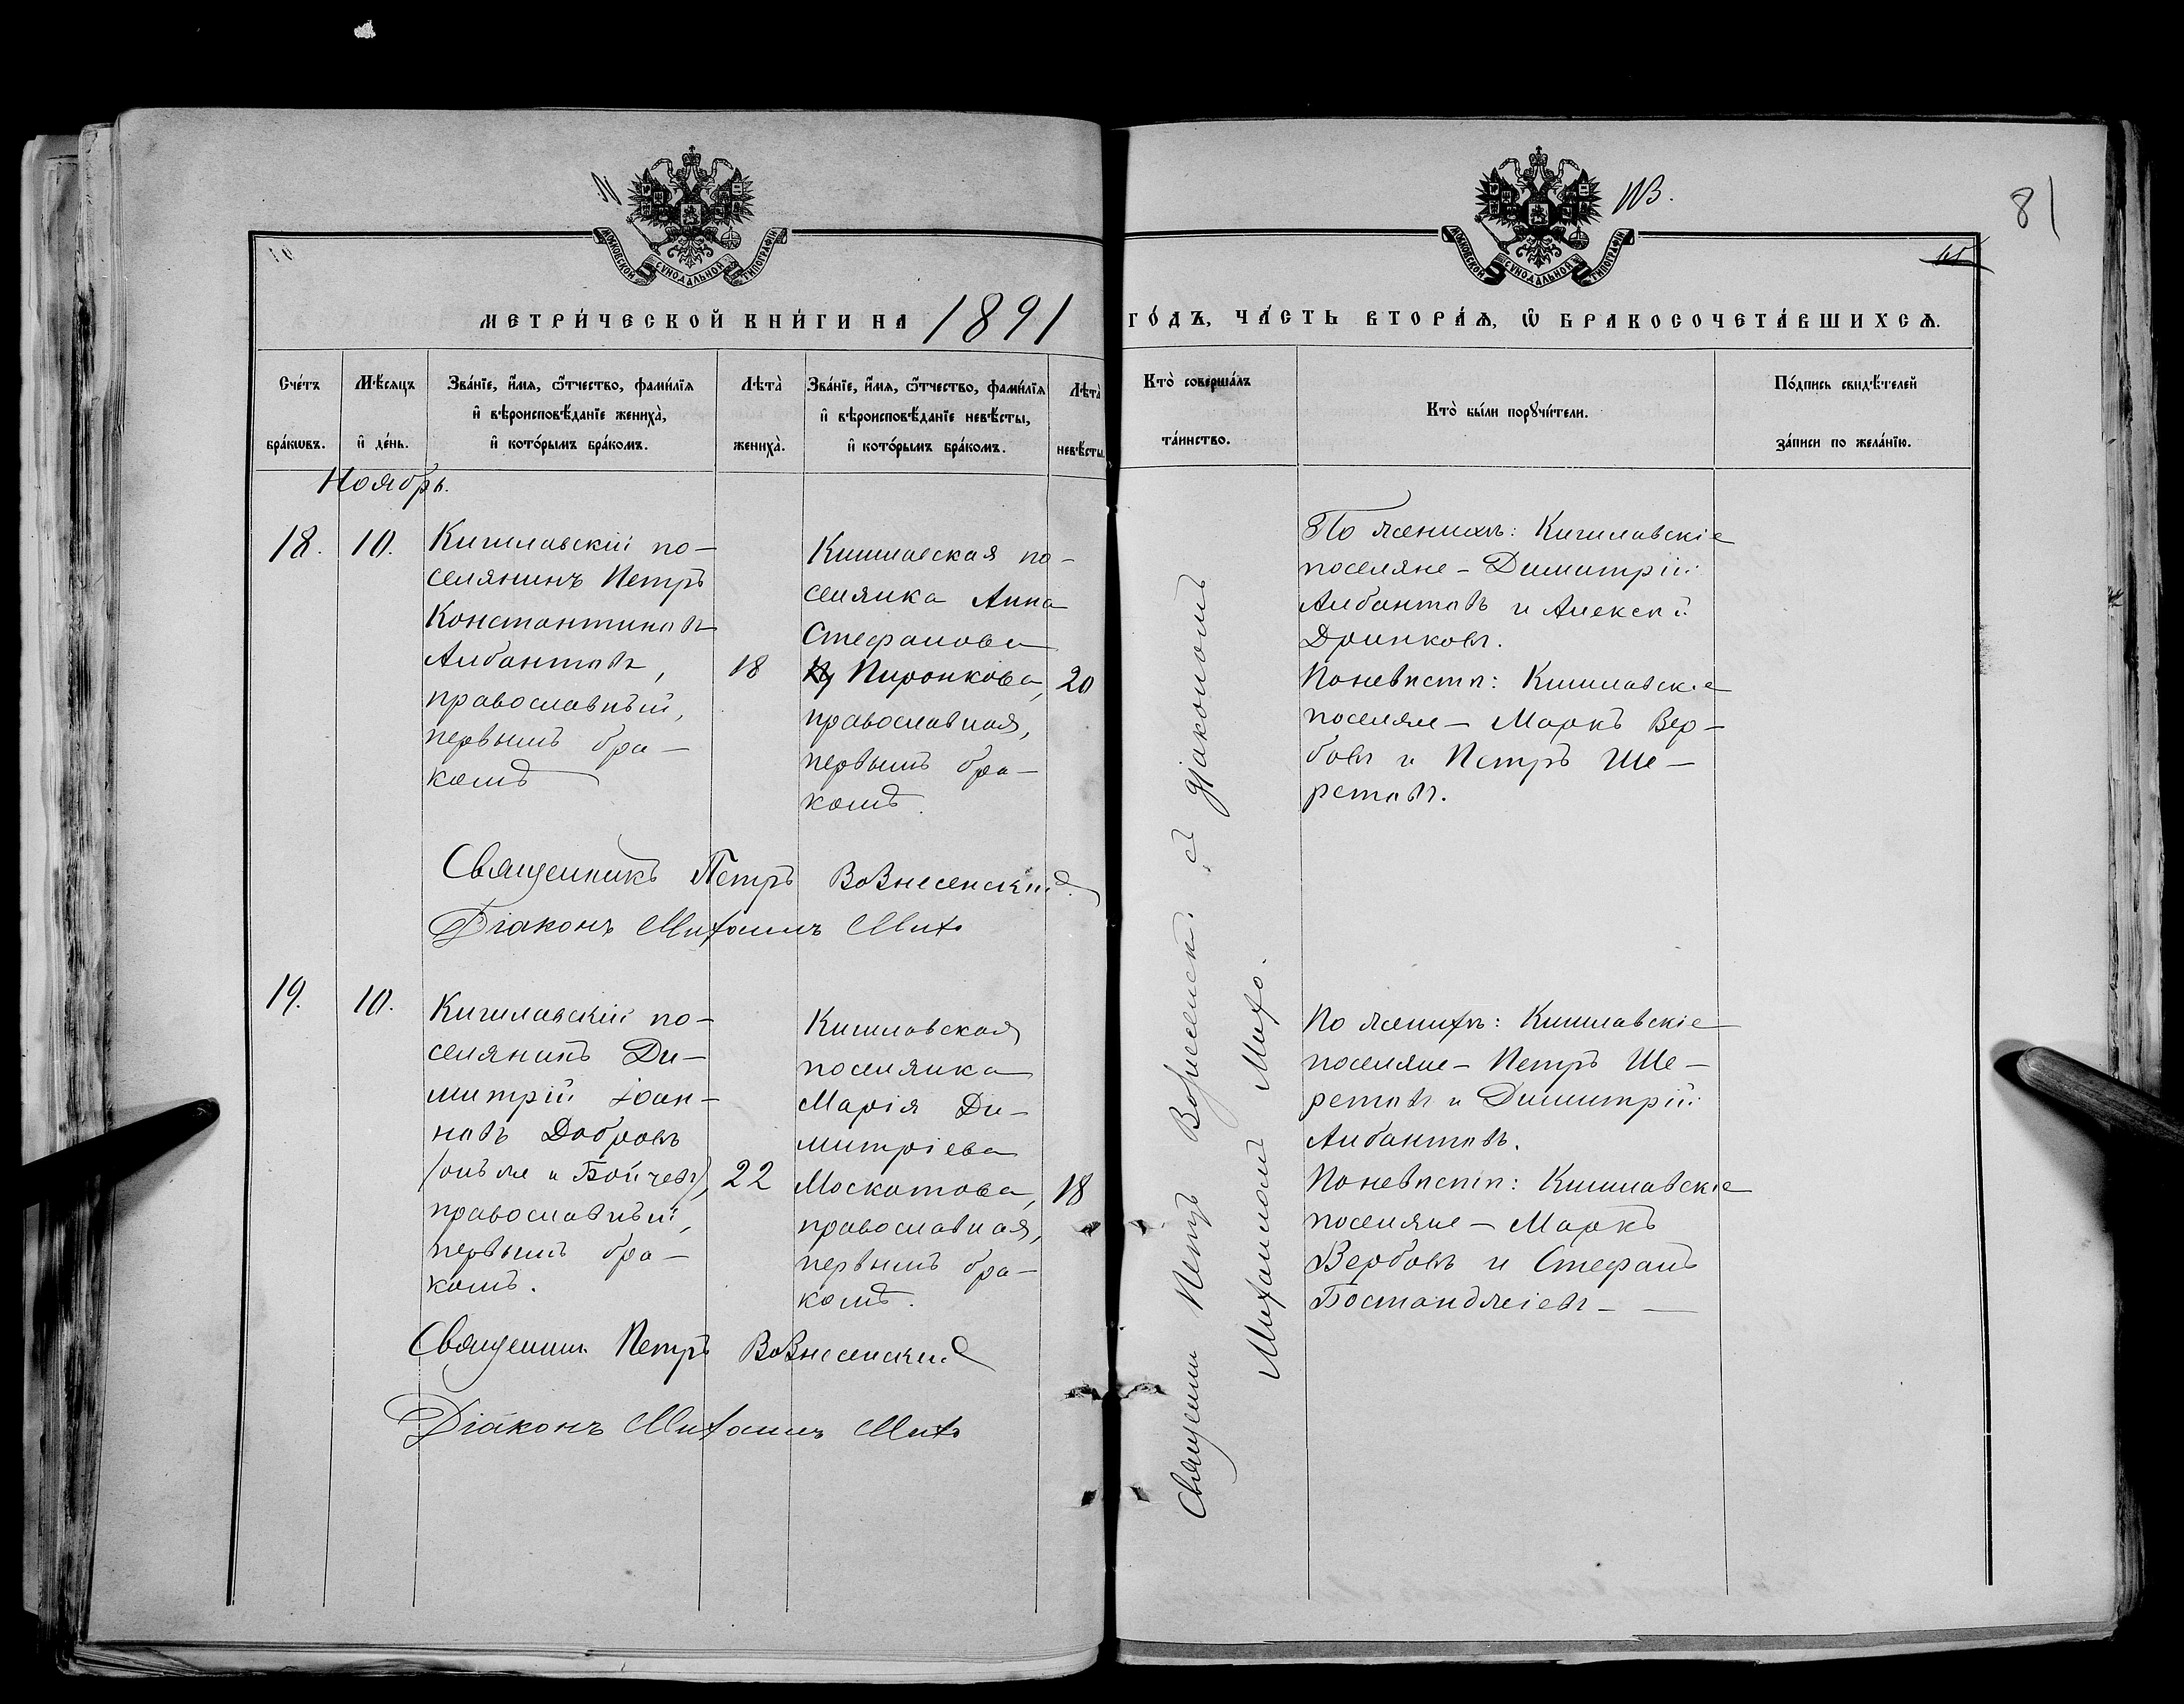 81
МОСКОВСКОЙ СѴНОДАЛЬНОЙ ТИПОГРАФІИ
МОСКОВСКОЙ СѴНОДАЛЬНОЙ ТИПОГРАФІИ
МЕТРИ́ЧЕСКОЙ КНИ́ГИ НА 1891 ГО́ДЪ, ЧА́СТЬ ВТОРА́Ѧ, Ѽ БРАКОСОЧЕТА́ВШИХСѦ.
Сче́тъ бра́кѡвъ.
Мѣ́сяцъ и҆ де́нь.
Зва́нїе, и҆́мя, ѻ҆́тчество, фами́лїя
и҆ вѣроисповѣ́данїе жениха̀,
и҆ кото́рымъ бра́комъ.
Лѣта̀ жениха̀.
Зва́нїе, и҆́мя, ѻ҆́тчество, фами́лїя
и҆ вѣроисповѣ́данїе невѣ́сты,
и҆ кото́рымъ бра́комъ.
Лѣта̀ невѣ́сты.
Кто̀ соверша́лъ та́инство.
Кто̀ бы́ли порꙋчи́тели.
По́дпись свидѣ́телей за́писи по жела́нїю.
Ноябрь.
18.
10.
Кишлавскій по-
селянинъ Петръ
Константиновъ
Албантовъ,
православный,
первымъ бра-
комъ
18
Кишлавская по-
селянка Анна
Стефанова
Пиронкова,
православная,
первымъ бра-
комъ.
20
По женихѣ: Кишлавскіе
поселяне - Димитрій
Албантовъ и Алексѣй
Дринковъ.
По невѣстѣ: Кишлавскіе
поселяне - Маркъ Вер-
бовъ и Петръ Ше-
ретовъ.
Священникъ Петръ Вознесенскій.
Діаконъ Михаилъ Михо
19.
10.
Кишлавскій по-
селянинъ Ди-
митрій Іоан-
новъ Добровъ
(онъ же и Бойчевъ),
православный,
первымъ бра-
комъ.
22
Кишлавская
поселянка
Марія Ди-
митріева
Москатова,
православная,
первымъ бра-
комъ.
18
По женихѣ: Кишлавскіе
поселяне - Петръ Ше-
ретовъ и Димитрій
Албантовъ.
По невѣстѣ: Кишлавскіе
поселяне - Маркъ
Вербовъ и Стефанъ
Бостанджіевъ -
Священникъ Петръ Вознесенскій
Діаконъ Михаилъ Михо
Священник Петръ Вознесенск. съ діакономъ
Михаиломъ Михо.